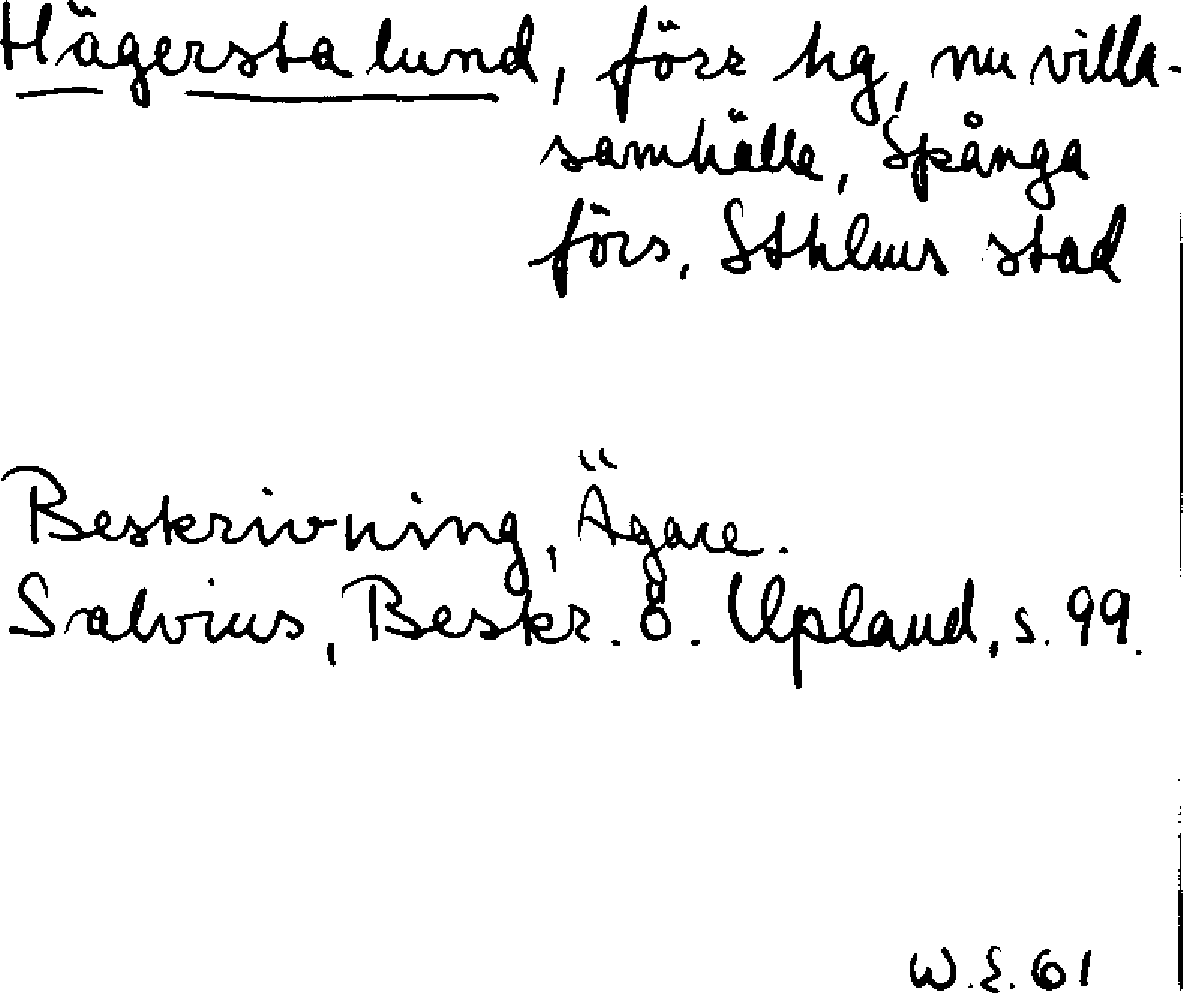 Hägerstalund, förr hg, nu villa-
samhälle, Spånga
förs, Sthlms stad
Beskrivning, Ägare.
Salvius, Beskr. ö. Upland, s. 99.
W.E. 61